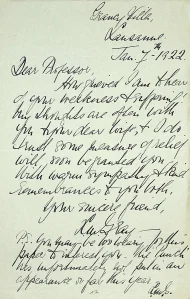 Lausanne
Jan. 7th 1922.
Dear Professor,
How grieved I am to hear
of your weakness & suffering!
My thoughts are often with
you & your dear wife & I do
trust some measure of relief
will soon be granted you.
With warm sympathy & kind
remembrances to you both,
Your sincere friend,
P.S. You may be looking for this
paper to interest you. The
has unfortunately not put in an
appearance so far this year.